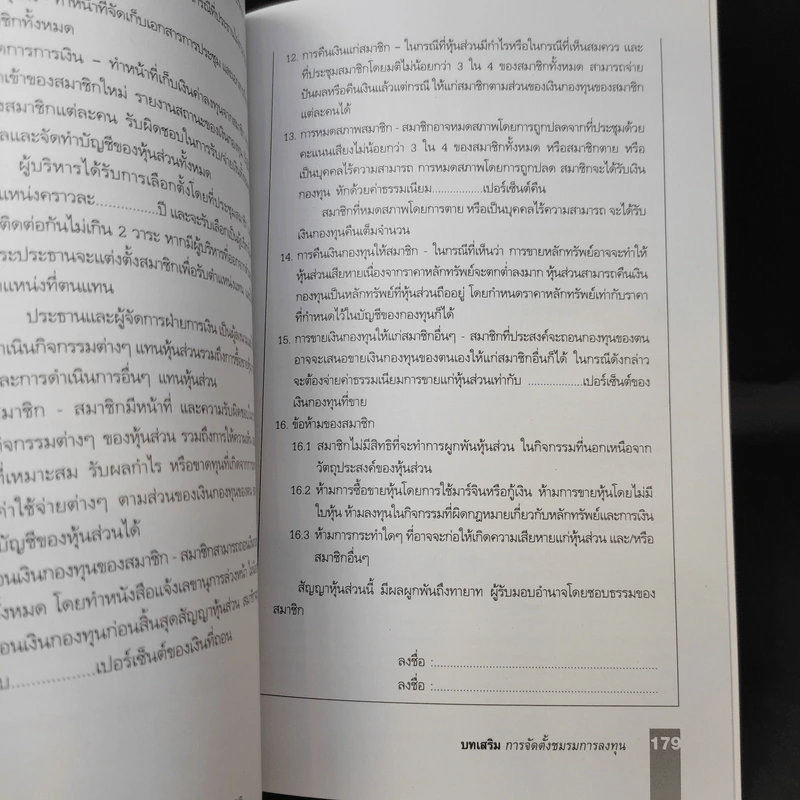 ทำหน้าที่จัดเก็บเอกสารการประชุม
ชิกทั้งหมด
ดการการเงิน – ทำหน้าที่เก็บเงินค่าลงทุน
เข้าของสมาชิกใหม่ รายงานสถานะของเงินกองทุน
งสมาชิกแต่ละคน รับผิดชอบในการรับจ่ายเงิน
ลและจัดทำบัญชีของหุ้นส่วนทั้งหมด
ผู้บริหารได้รับการเลือกตั้งโดยที่ประชุม
แหน่งคราวละ...............ปี และจะรับเลือกเป็น
ติดต่อกันไม่เกิน 2 วาระ หากมีผู้บริหารที่ออก
ระประธานจะแต่งตั้งสมาชิกเพื่อรับตำแหน่งแทน
แหน่งที่ตนแทน
ประธานและผู้จัดการฝ่ายการเงิน เป็น
ำเนินกิจกรรมต่างๆ แทนหุ้นส่วนรวมถึงการซื้อ
ละการดำเนินการอื่นๆ แทนหุ้นส่วน
สมาชิก - สมาชิกมีหน้าที่ และความรับผิดชอบ
กิจกรรมต่างๆ ของหุ้นส่วน รวมถึงการให้ความ
ที่เหมาะสม รับผลกำไร หรือขาดทุนที่เกิดจาก
ค่าใช้จ่ายต่างๆ ตามส่วนของเงินกองทุนของ
บัญชีของหุ้นส่วนได้
อนเงินกองทุนของสมาชิก - สมาชิกสามารถถอน
ั้งหมด โดยทำหนังสือแจ้งเลขานุการล่วงหน้า
อนเงินกองทุนก่อนสิ้นสุดสัญญาหุ้นส่วน
บ...............เปอร์เซ็นต์ของเงินที่ถอน
12. การคืนเงินแก่สมาชิก – ในกรณีที่หุ้นส่วนมีกำไรหรือในกรณีที่เห็นสมควร และ
ที่ประชุมสมาชิกโดยมติไม่น้อยกว่า 3 ใน 4 ของสมาชิกทั้งหมด สามารถจ่าย
ปันผลหรือคืนเงินแล้วแต่กรณี ให้แก่สมาชิกตามส่วนของเงินกองทุนของสมาชิก
แต่ละคนได้
13. การหมดสภาพสมาชิก - สมาชิกอาจหมดสภาพโดยการถูกปลดจากที่ประชุมด้วย
คะแนนเสียงไม่น้อยกว่า 3 ใน 4 ของสมาชิกทั้งหมด หรือสมาชิกตาย หรือ
เป็นบุคคลไร้ความสามารถ การหมดสภาพโดยการถูกปลด สมาชิกจะได้รับเงิน
กองทุน หักด้วยค่าธรรมเนียม.................เปอร์เซ็นต์คืน
สมาชิกที่หมดสภาพโดยการตาย หรือเป็นบุคคลไร้ความสามารถ จะได้รับ
เงินกองทุนคืนเต็มจำนวน
14. การคืนเงินกองทุนให้สมาชิก - ในกรณีที่เห็นว่า การขายหลักทรัพย์อาจจะทำให้
หุ้นส่วนเสียหายเนื่องจากราคาหลักทรัพย์จะตกต่ำลงมาก หุ้นส่วนสามารถคืนเงิน
กองทุนเป็นหลักทรัพย์ที่หุ้นส่วนถืออยู่ โดยกำหนดราคาหลักทรัพย์เท่ากับราคา
ที่กำหนดไว้ในบัญชีของกองทุนก็ได้
15. การขายเงินกองทุนให้แก่สมาชิกอื่นๆ - สมาชิกที่ประสงค์จะถอนกองทุนของตน
อาจจะเสนอขายเงินกองทุนของตนเองให้แก่สมาชิกอื่นก็ได้ ในกรณีดังกล่าว
จะต้องจ่ายค่าธรรมเนียมการขายแก่หุ้นส่วนเท่ากับ .................เปอร์เซ็นต์ของ
เงินกองทุนที่ขาย
16. ข้อห้ามของสมาชิก
16.1 สมาชิกไม่มีสิทธิที่จะทำการผูกพันหุ้นส่วน ในกิจกรรมที่นอกเหนือจาก
วัตถุประสงค์ของหุ้นส่วน
16.2 ห้ามการซื้อขายหุ้นโดยการใช้มาร์จินหรือกู้เงิน ห้ามการขายหุ้นโดยไม่มี
ใบหุ้น ห้ามลงทุนในกิจกรรมที่ผิดกฎหมายเกี่ยวกับหลักทรัพย์และการเงิน
16.3 ห้ามการกระทำใดๆ ที่อาจจะก่อให้เกิดความเสียหายแก่หุ้นส่วน และ/หรือ
สมาชิกอื่นๆ
สัญญาหุ้นส่วนนี้ มีผลผูกพันถึงทายาท ผู้รับมอบอำนาจโดยชอบธรรมของ
สมาชิก
ลงชื่อ :..............................................................
ลงชื่อ :..............................................................
บทเสริม การจัดตั้งชมรมการลงทุน 179